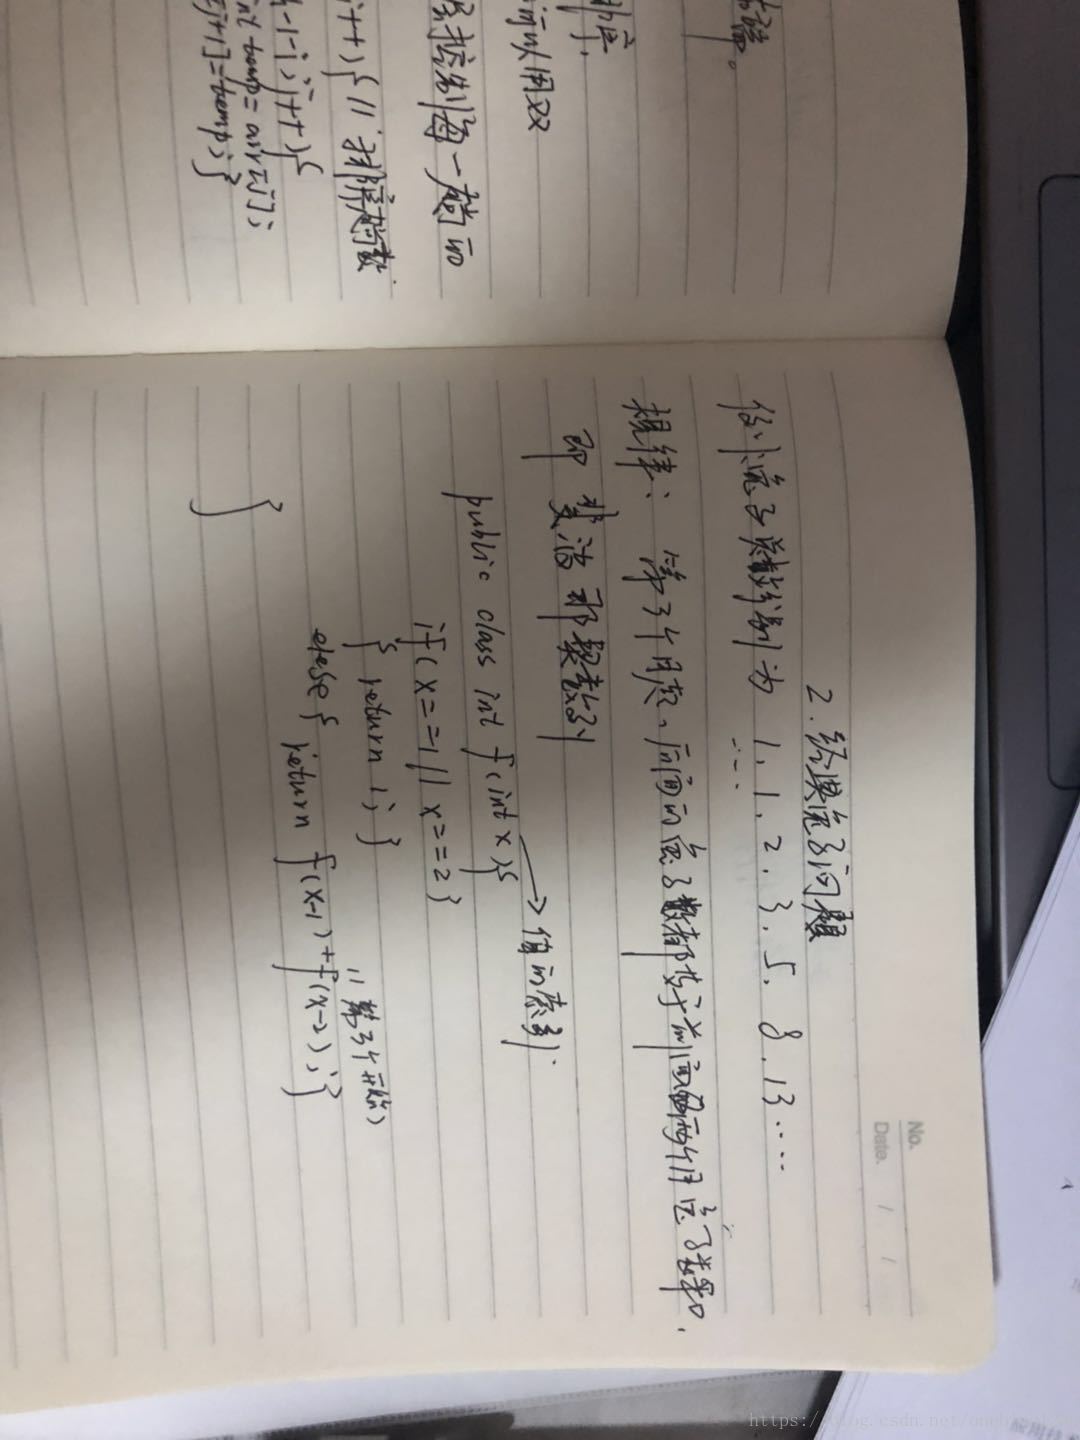 No.
Date. / /
2.经典兔子问题
兔子总数分别为 1.1.2.3.5.8.13....
规律: 第3个月起,后面的兔子数都等于前面两个月兔子数和.
即斐波那契数列
public class int f(int x){ → 值的索引.
if(x==1||x==2)
{ return 1; }
else{ //第3个开始
return f(x-1)+f(x-2);}
}
器。
排序.
可以用双
序控制每一趟的
i++){ // 排序趟数
-1-i;j++){
int temp=arr[j];
[j+1]=temp;}
https://blog.csdn.net/